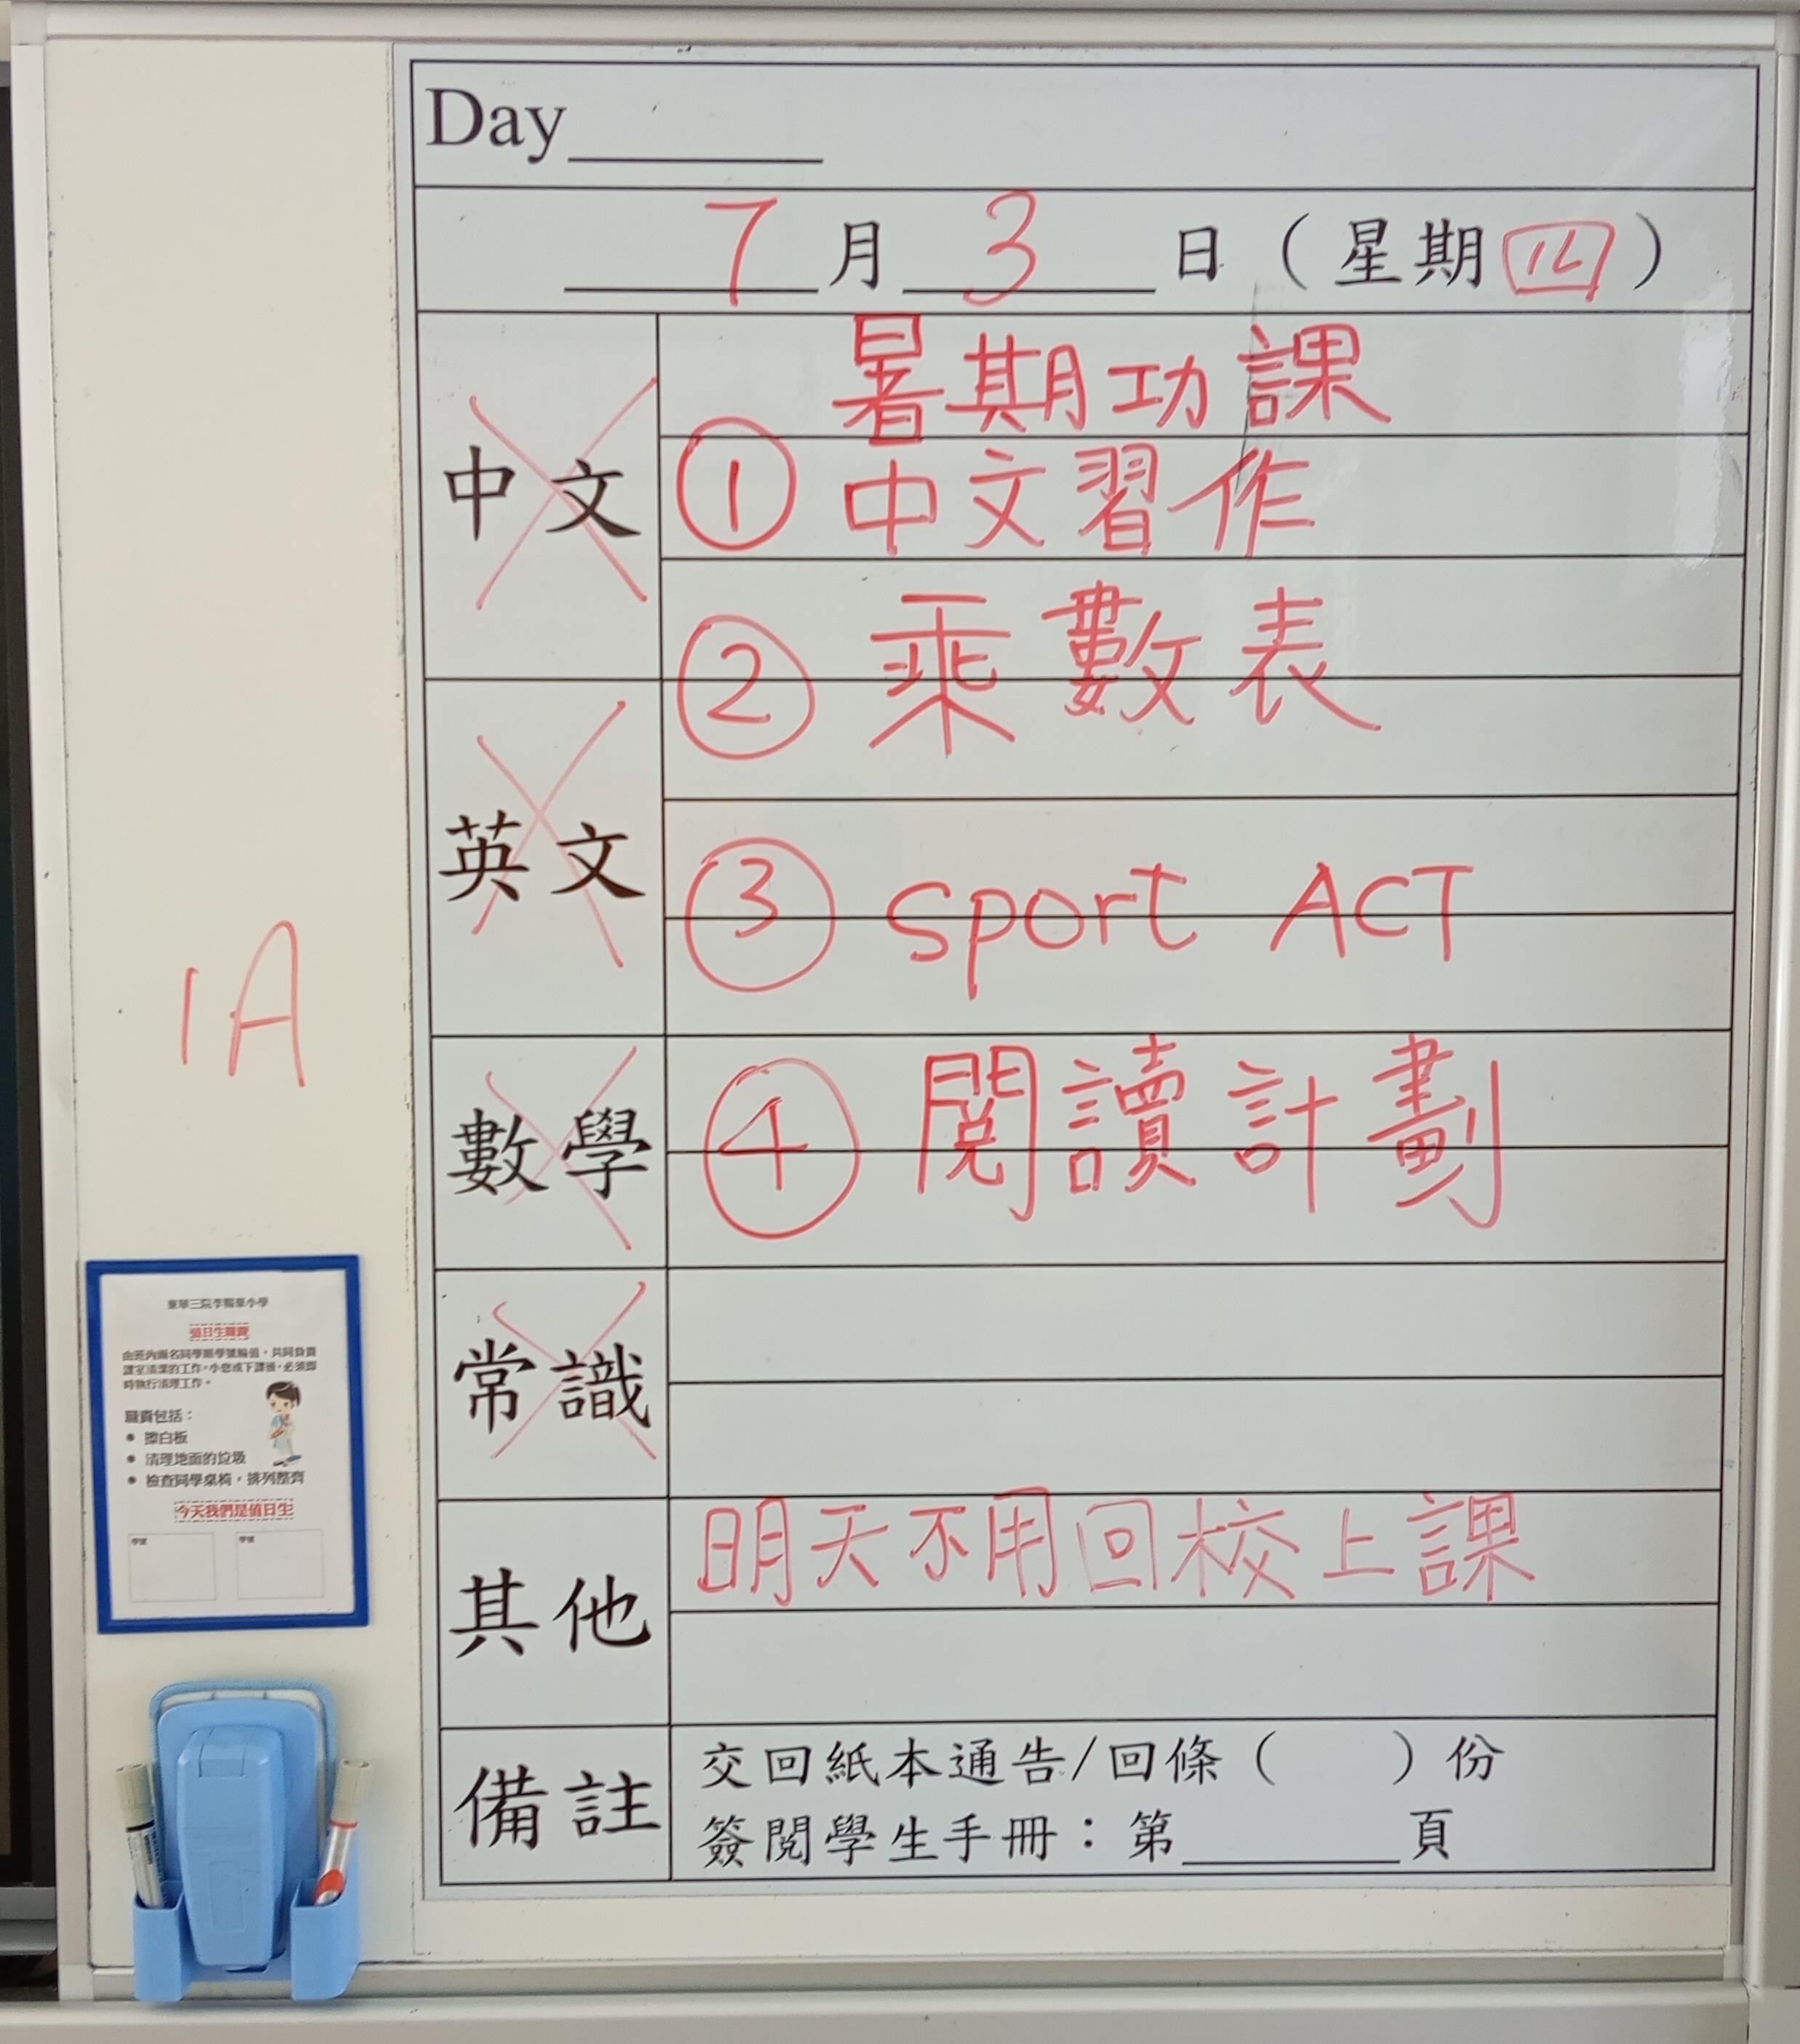 Day
7月3日（星期四）
中文
暑期功課
①中文習作
②乘數表
英文
③sport ACT
1A
數學
④閱讀計劃
常識
其他
明天不用回校上課
備註
交回紙本通告/回條（　　）份
簽閱學生手冊：第______頁
值日生職責
由班內兩名同學順學號輪值，共同負責
課室清潔的工作。小息或下課後，必須即
時執行清理工作。
職責包括：
● 擦白板
● 清理地面的垃圾
● 檢查同學桌椅，排列整齊
今天我們是值日生
學號
學號